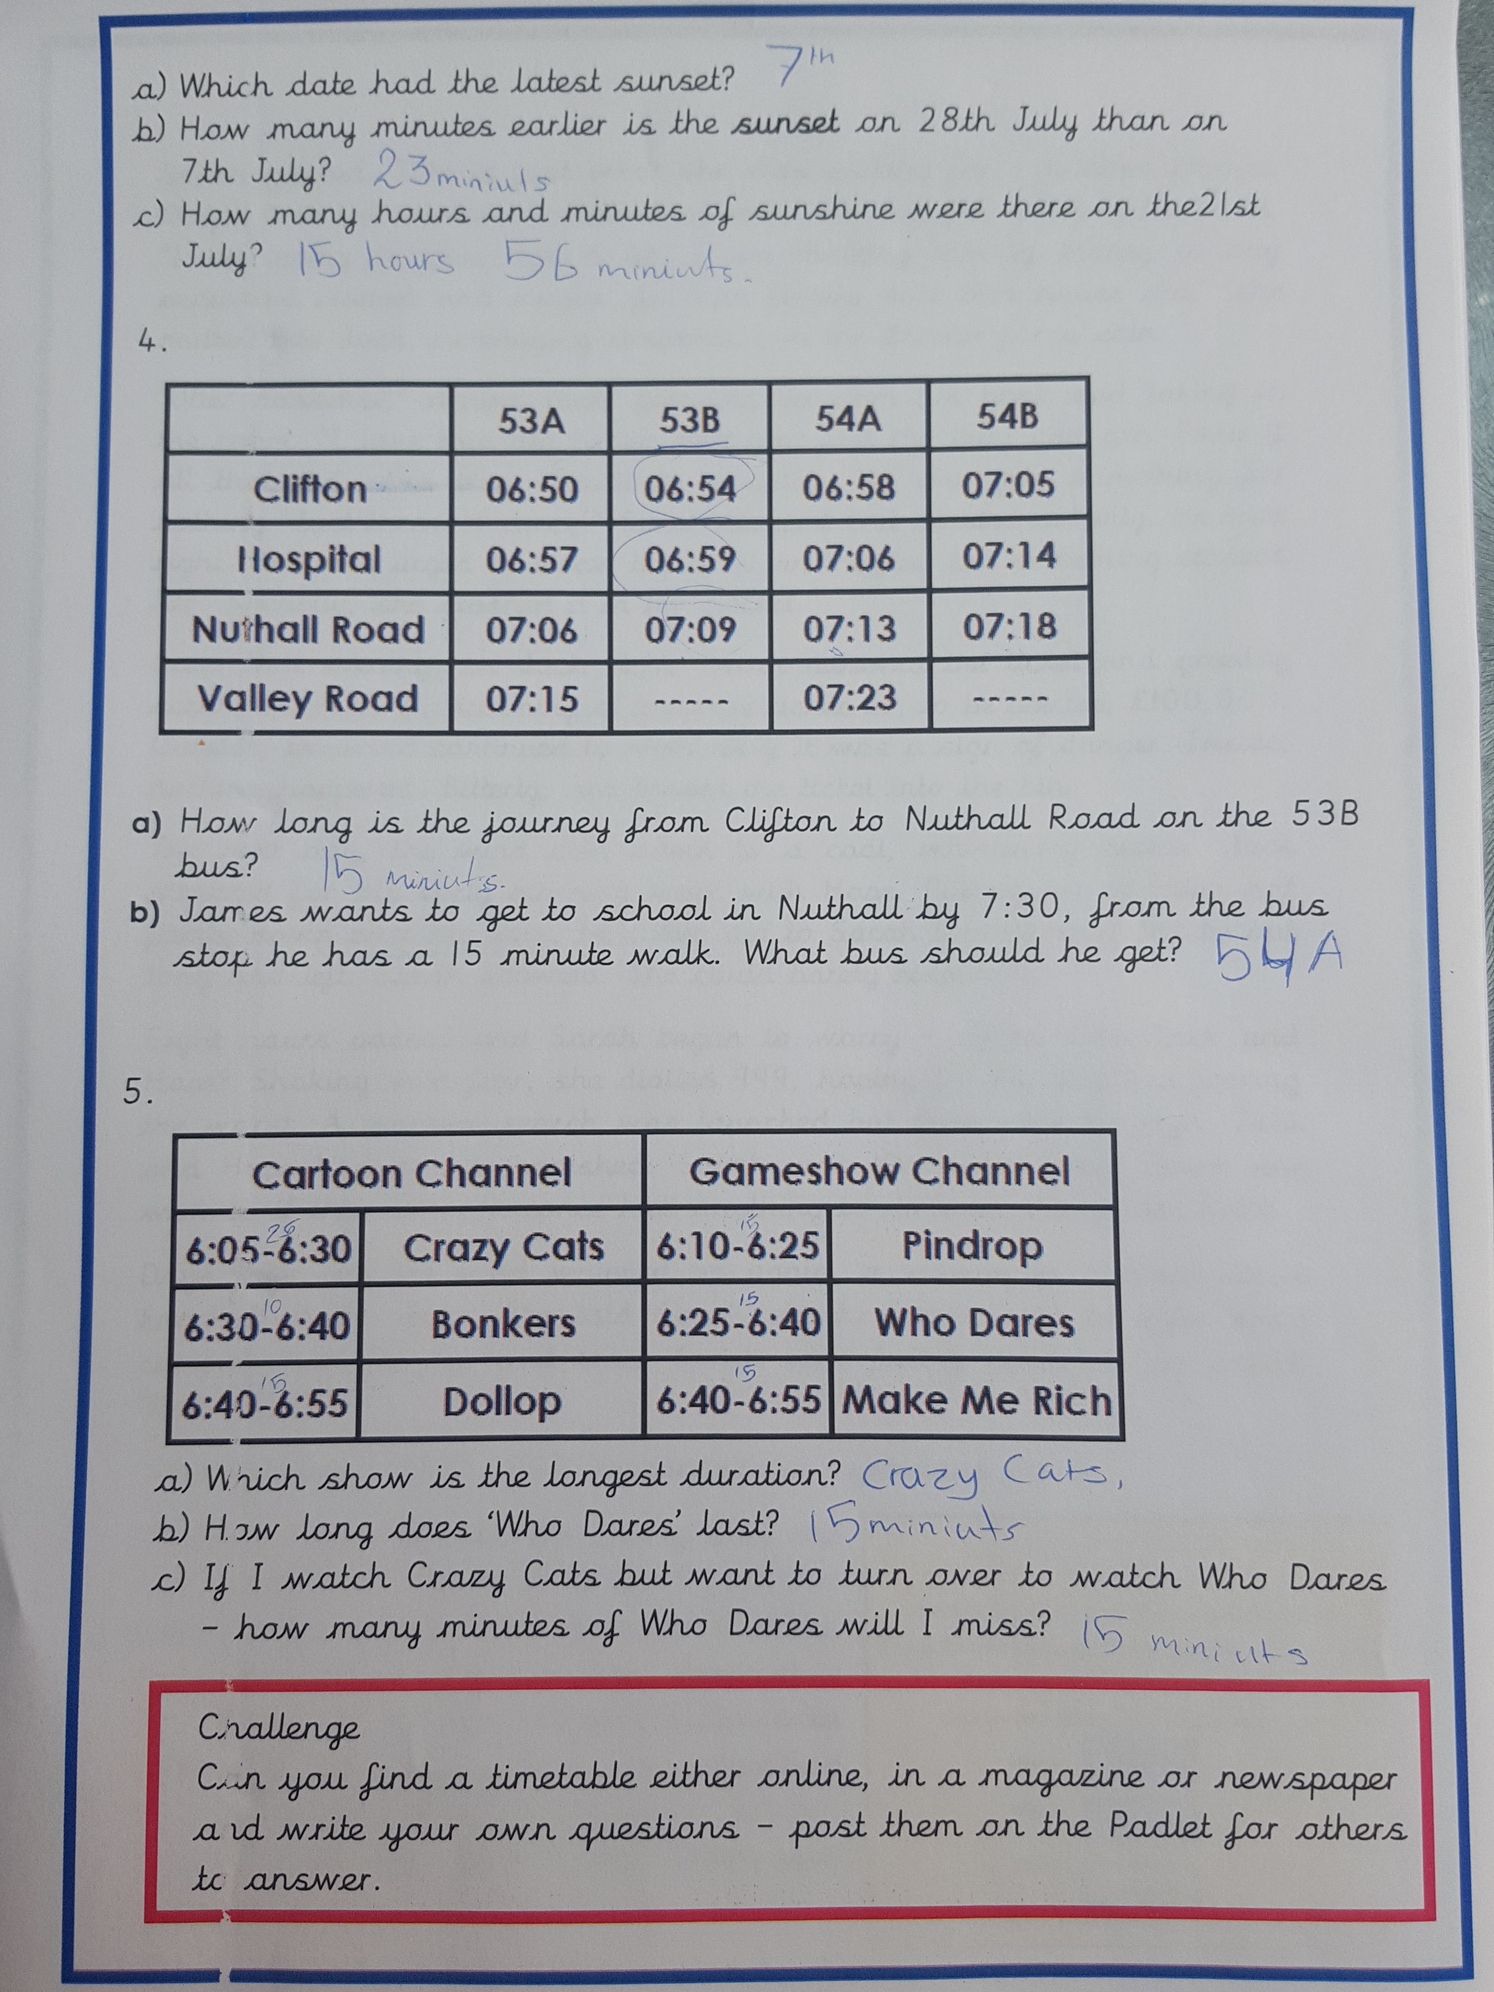 a) Which date had the latest sunset? 7th
b) How many minutes earlier is the sunset on 28th July than on
7th July? 23 miniuts
c) How many hours and minutes of sunshine were there on the21st
July? 15 hours 56 miniuts.
4.
53A 53B 54A 54B
Clifton 06:50 06:54 06:58 07:05
Hospital 06:57 06:59 07:06 07:14
Nuthall Road 07:06 07:09 07:13 07:18
Valley Road 07:15 ----- 07:23 -----
a) How long is the journey from Clifton to Nuthall Road on the 53B
bus? 15 miniuts.
b) James wants to get to school in Nuthall by 7:30, from the bus
stop he has a 15 minute walk. What bus should he get? 54A
5.
Cartoon Channel Gameshow Channel
25 15
6:05-6:30 Crazy Cats 6:10-6:25 Pindrop
10 15
6:30-6:40 Bonkers 6:25-6:40 Who Dares
15 15
6:40-6:55 Dollop 6:40-6:55 Make Me Rich
a) Which show is the longest duration? Crazy Cats,
b) How long does 'Who Dares' last? 15 miniuts
c) If I watch Crazy Cats but want to turn over to watch Who Dares
– how many minutes of Who Dares will I miss? 15 miniuts
Challenge
Can you find a timetable either online, in a magazine or newspaper
and write your own questions – post them on the Padlet for others
to answer.